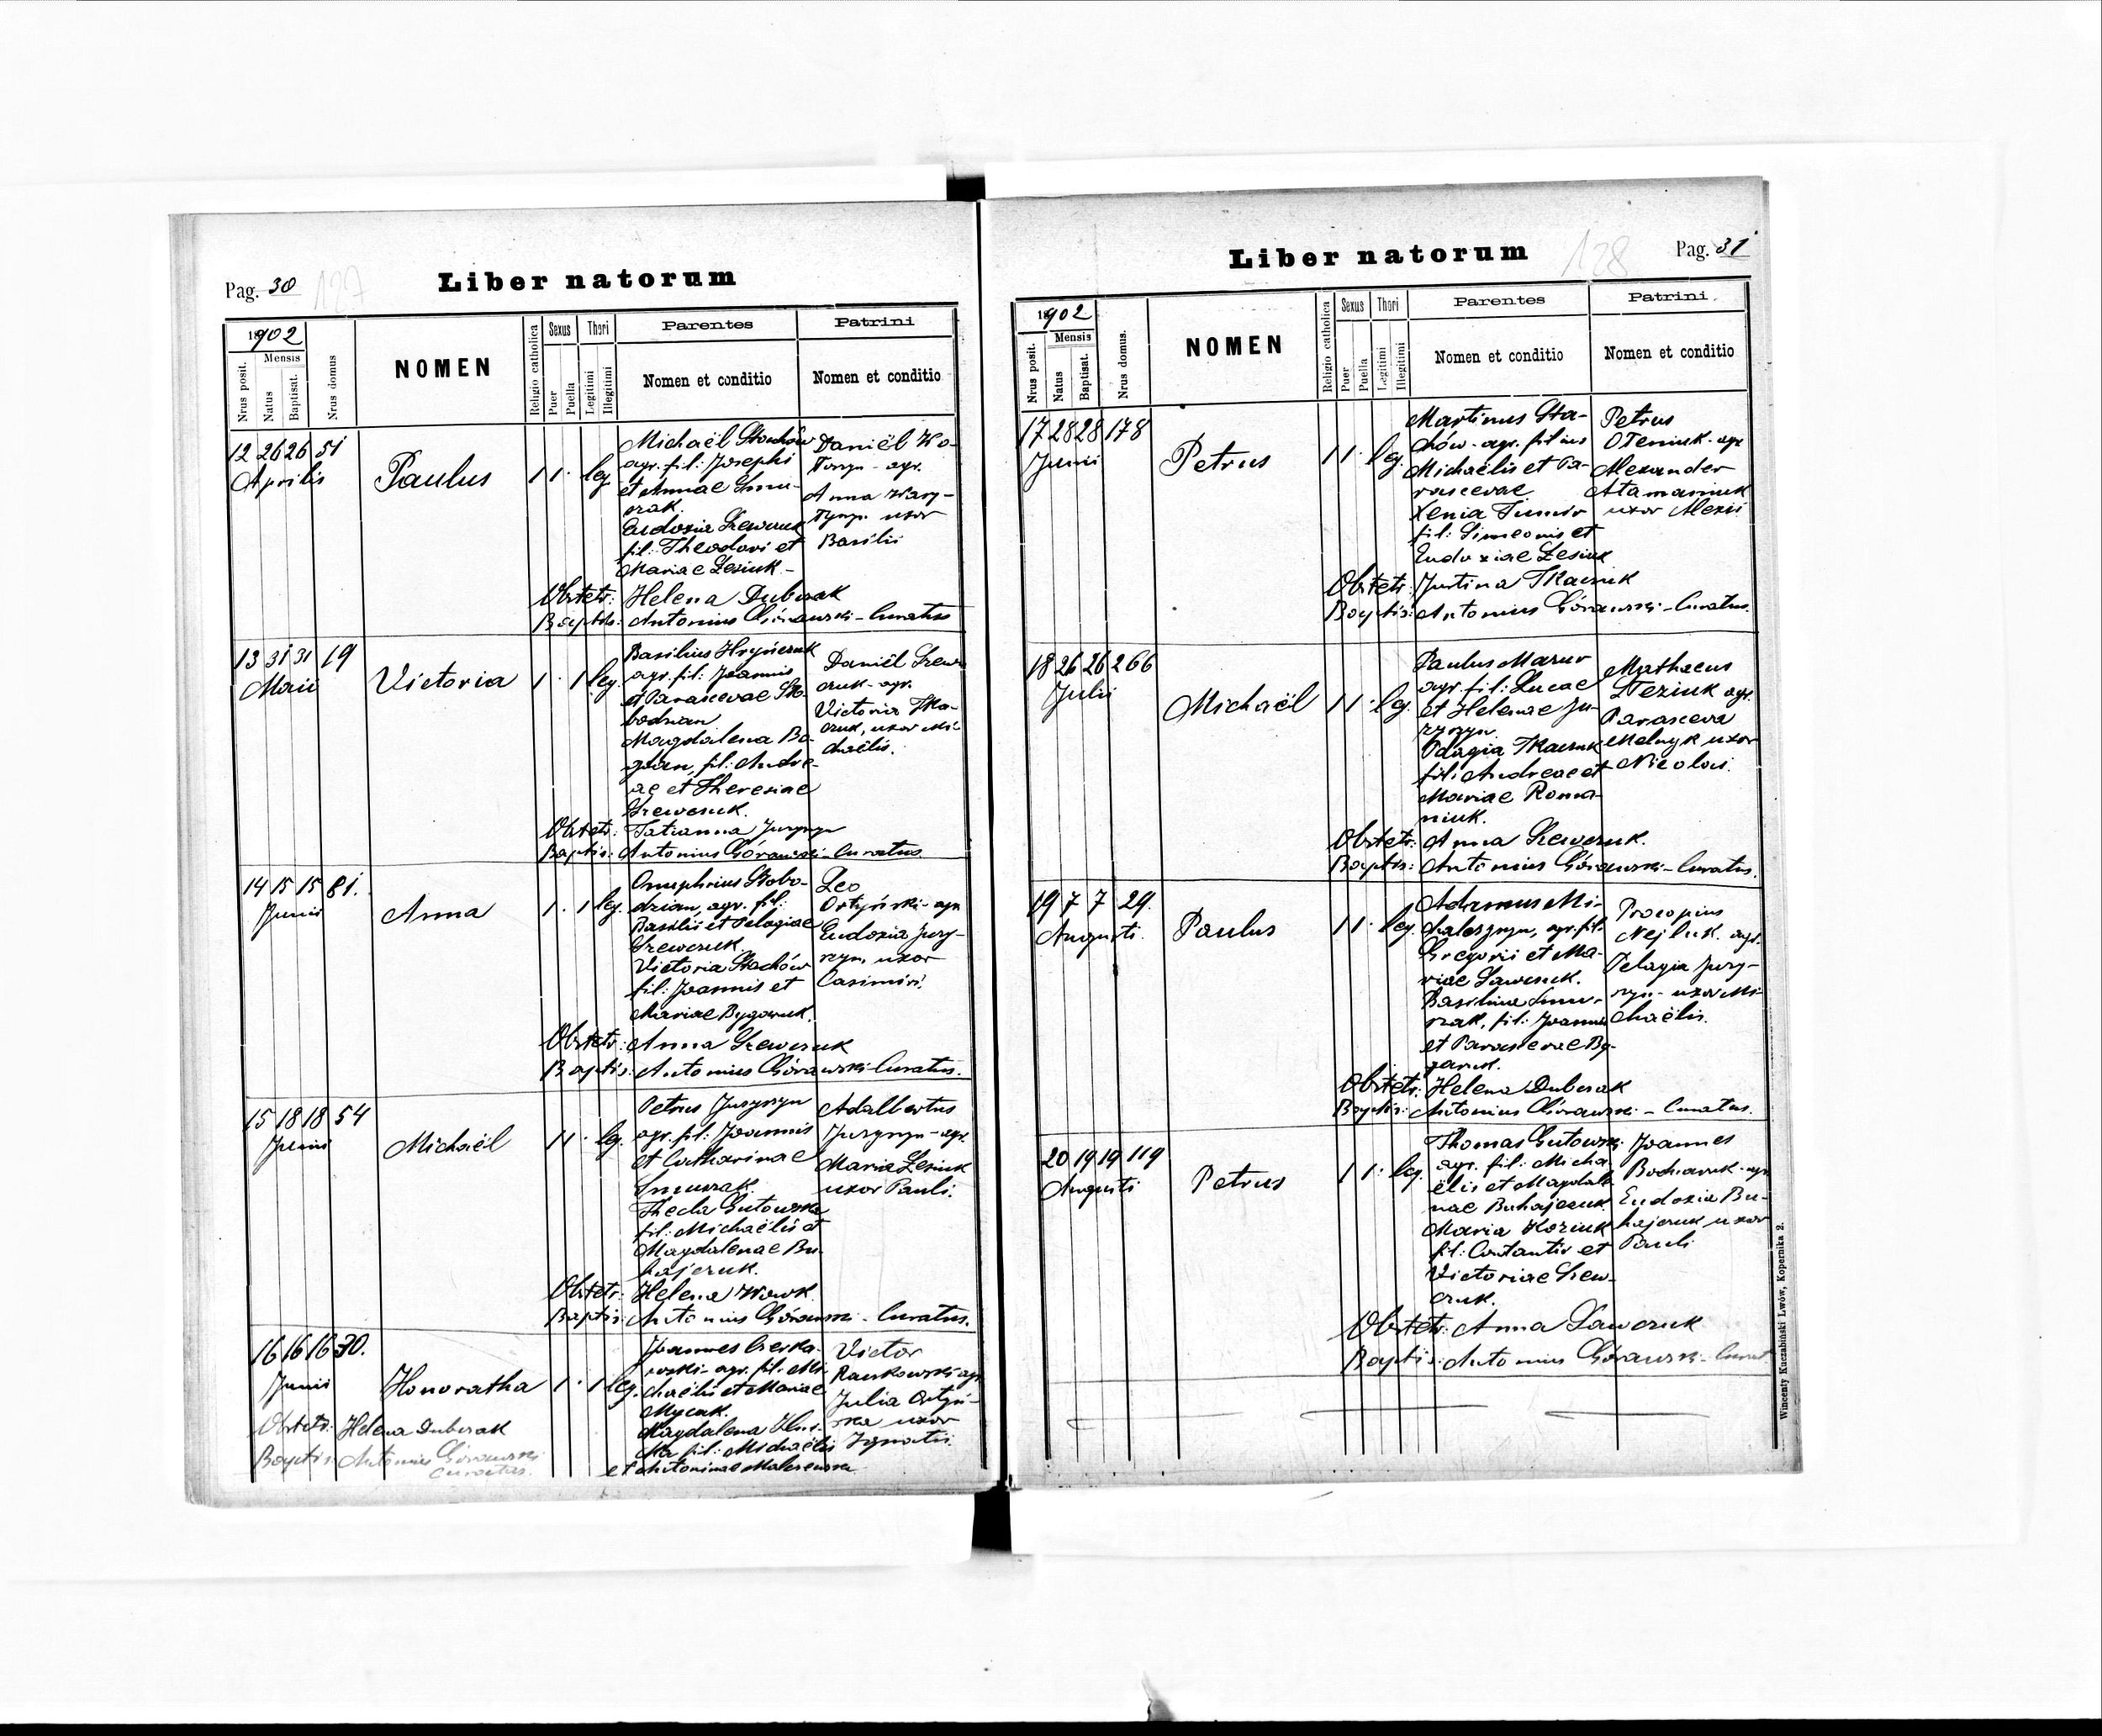 Pag. 30
127
Liber natorum
1902
Mensis
Nrus posit.
Natus
Baptisat.
Nrus domus
NOMEN
Religio catholica
Sexus
Puer
Puella
Thori
Legitimi
Illegitimi
Parentes
Nomen et conditio
Patrini
Nomen et conditio
12 26 26 51
Aprilis
Paulus
1 1 · leg.
Michaël Stachów
agr. fil: Josephi
et Annae Smu-
rak.
Eudoxia Szewczuk
fil: Theodori et
Mariae Lesiuk -
Daniël
- agr.
Anna
uxor
Basilii
Obstetr: Helena Dubczak
Baptis: Antonius Górawski - Curatus
13 31 31 19
Maii
Victoria
1 · 1 leg.
Basilius Hryńczuk
agr. fil: Joannis
et Parascevae Sło-
bodzian
Magdalena Bo-
fil: Andre-
ae et Theresiae
Szewczuk.
Daniël Szew-
czuk - agr.
Victoria Tka-
czuk, uxor Mi-
chaëlis.
Obstetr: Tatianna Juryzyn
Baptis: Antonius Górawski - Curatus
14 15 15 81.
Junii
Anna
1 · 1 leg.
Onuphrius Słobo-
dzian, agr. fil:
Basilii et Pelagiae
Szewczuk.
Victoria Stachów
fil: Joannis et
Mariae
Leo
Ortyński - agr.
Eudoxia Jury-
zyn, uxor
Casimiri.
Obstetr: Anna Szewczuk
Baptis: Antonius Górawski - Curatus.
15 18 18 54
Junii
Michaël
1 1 · leg.
Petrus Juryzyn
agr. fil: Joannis
et Catharinae
Smurzak.
Thecla Gutowska
fil: Michaëlis et
Magdalenae Bu-
hajczuk.
Adalbertus
Juryzyn - agr.
Maria Lesiuk
uxor Pauli.
Obstetr: Helena Wowk
Baptis: Antonius Górawski - Curatus.
16 16 16 30.
Junii
Honoratha
1 · 1 leg.
Joannes
agr. fil. Mi-
chaëlis et Mariae
Mycak.
Magdalena
fil: Michaëlis
et Antoninae
Victor
Raczkowski agr.
Julia Ortyń-
ska uxor
Ignatii.
Obstetr: Helena Dubczak
Baptis: Antonius Górawski
Curatus.
Liber natorum
128
Pag. 31
1902
Mensis
Nrus posit.
Natus
Baptisat.
Nrus domus.
NOMEN
Religio catholica
Sexus
Puer
Puella
Thori
Legitimi
Illegitimi
Parentes
Nomen et conditio
Patrini
Nomen et conditio
17 28 28 178
Junii
Petrus
1 1 · leg.
Martinus Sta-
chów - agr. filius
Michaëlis et Pa-
rascevae
Xenia
fil: Simeonis et
Eudoxiae Lesiuk
Petrus
Oleniuk - agr
Alexander
Atamaniuk
uxor Alexii
Obstetr: Justina Tkaczuk
Baptis: Antonius Górawski - Curatus.
18 26 26 266
Julii
Michaël
1 1 · leg.
Paulus Mazur
agr. fil: Lucae
et Helenae Ju-
ryzyn.
Pelagia Tkaczuk
fil: Andreae et
Mariae Roma-
niuk.
Mathaeus
agr.
Parasceva
Melnyk uxor
Nicolai.
Obstetr: Anna Szewczuk.
Baptis: Antonius Górawski - Curatus.
19 7 7 29.
Augusti.
Paulus
1 1 · leg.
Adamus Mi-
agr. fil:
Gregorii et Ma-
riae Sawczuk.
Basilina Smur-
zak, fil: Joannis
et Parascevae By-
Procopius
Nejluk. agr.
Pelagia Jury-
zyn - uxor Mi-
chaëlis.
Obstetr: Helena Dubczak
Baptis: Antonius Górawski - Curatus.
20 19 19 119
Augusti
Petrus
1 1 · leg.
Thomas Gutowski
agr. fil: Micha-
ëlis et Magdale-
nae Buhajczuk
Maria Koziuk
fil: et
Victoriae Szew-
czuk.
Joannes
agr
Eudoxia Bu-
hajczuk uxor
Pauli
Obstetr: Anna Sawczuk
Baptis: Antonius Górawski - Curat.
Wincenty Kuczabiński Lwów, Kopernika 2.